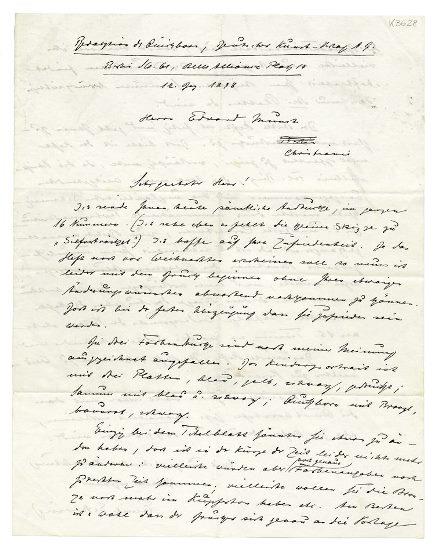 K3628
Redaction des Quickborn, Deutscher Kunst-Verlag A.G.
Berlin S.W. 61, Belle Alliance Platz
12. Dez. 1898
Herrn Edvard Munch
Christiania
Sehr geehrter Herr!
Ich sende Ihnen heute sämtliche Andrucke, im ganzen
16 Nummern (Ich sehe eben es fehlt die kleine Skizze zu
Ich hoffe auf Ihre Zufriedenheit. Da das
Heft noch vor Weihnachten erscheinen soll so muss ich
leider mit dem Druck beginnen ohne Ihre etwaigen
Änderungswünsche abwartend nachkommen zu können.
Doch ich bin der festen Überzeugung dass Sie zufrieden sein
werden.
Die drei Farbendrucke sind nach meiner Meinung
ausgezeichnet ausgefallen. Das Kinderportrait ist
mit drei Platten, blau, gelb, schwarz, gedruckt;
mit blau u. schwarz; Quickborn mit Bronze,
braunrot, schwarz.
Einzig bei dem Titelblatt könnten Sie etwas zu än-
dern haben, doch ist in der Kürze der Zeit leider nichts mehr
zu ändern: vielleicht würden aber Farbenangaben noch
zu rechten Zeit kommen, vielleicht wollen Sie die Bron-
ze noch mehr im Kupferton haben etc. Am Besten
ist wohl dass der Drucker sich genau an die Vorlage